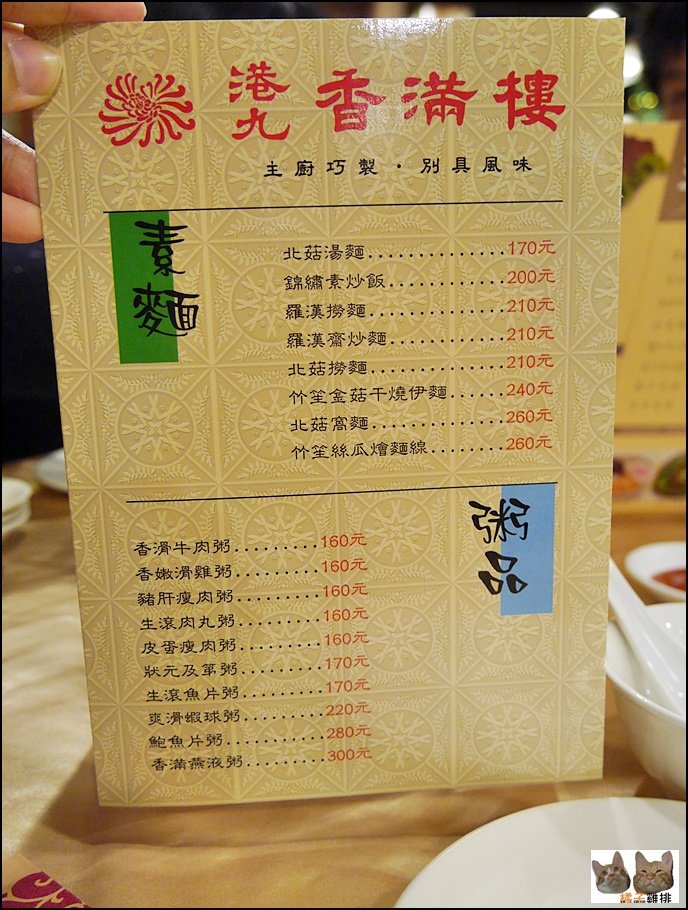 港九 香滿樓
主廚巧製・別具風味
素麵
北菇湯麵...............170元
錦繡素炒飯.............200元
羅漢撈麵...............210元
羅漢齋炒麵.............210元
北菇撈麵...............210元
竹笙金菇干燒伊麵......240元
北菇窩麵...............260元
竹笙絲瓜燴麵線........260元
粥品
香滑牛肉粥.........160元
香嫩滑雞粥.........160元
豬肝瘦肉粥.........160元
生滾肉丸粥.........160元
皮蛋瘦肉粥.........160元
狀元及第粥.........170元
生滾魚片粥.........170元
爽滑蝦球粥.........220元
鮑魚片粥...........280元
香滿燕液粥.........300元
橘子雞排